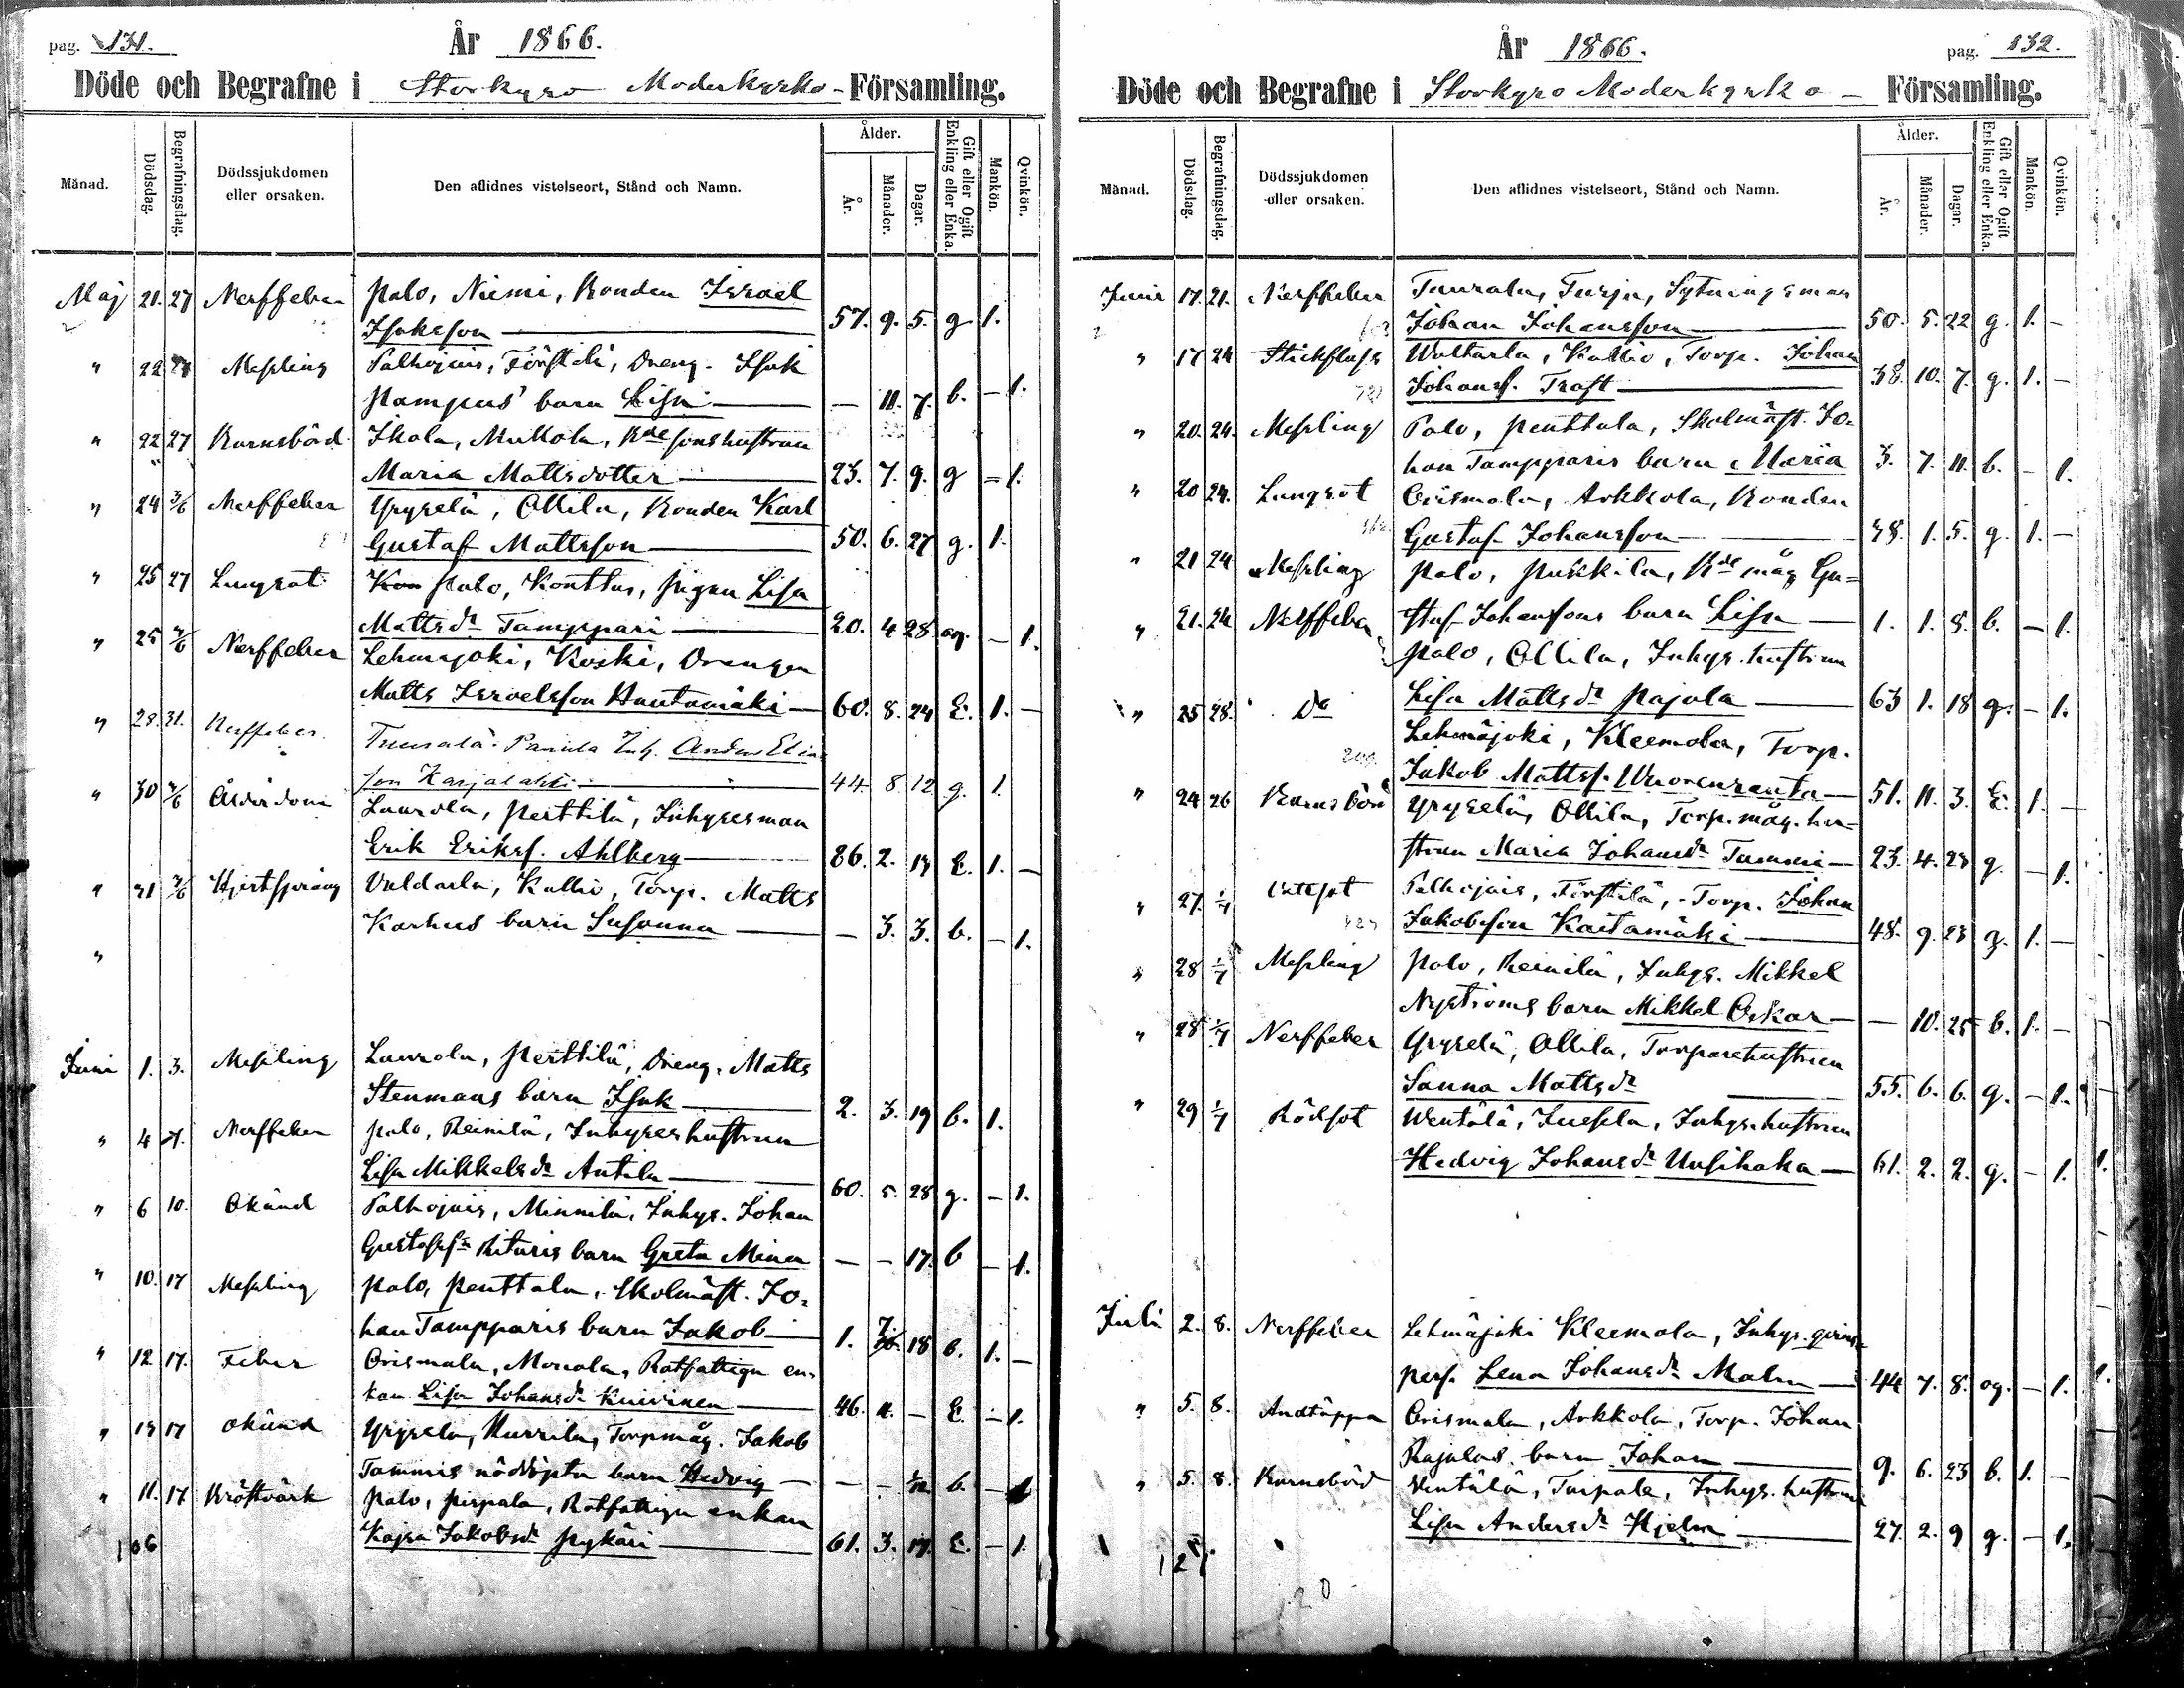 pag. 131.
År 1866.
Döde och Begrafne i Storkyro Moderkyrko- Församling.
Månad. Dödsdag. Begrafningsdag. Dödssjukdomen eller orsaken. Den aflidnes vistelseort, Stånd och Namn. Ålder. År. Månader. Dagar. Gift eller Ogift Enkling eller Enka. Mankön. Qvinkön.
Maj 21. 27 Nerffeber Palo, Niemi, Bonden Israel
Isaksson 57. 9. 5. g 1.
" 22 27 Messling Palhojais, Förstilä, Dreng. Isak
Pampus' barn Lisa — 11. 7. b. — 1.
" 22 27 Barnsbörd Ikola, Mukkola, Bde sonshustrun
Maria Mattsdotter 23. 7. 9. g = 1.
" 24 3/6 Nerffeber Yryselä, Ollila, Bonden Karl
Gustaf Mattsson 50. 6. 27 g. 1.
" 25 27 Lungsot Palo, Konttas, pigan Lisa
Mattsdr Tamppari 20. 4 28 og. — 1.
" 25 3/6 Nerffeber Lehmäjoki, Koski, Drengen
Matts Israelsson Hautamäki 60. 8. 24 E. 1. —
" 28. 31. Nerffeber Tuurala Panula Inh. Anders Elia
son Karjalahti 44. 8 12 g. 1.
" 30 3/6 Ålderdom Laurola, Perttilä, Inhysesman
Erik Eriksf. Ahlberg 86. 2. 19 E. 1. —
" 31 3/6 Hjertsprång Valdarla, Kallio, Torp. Matts
Karhus barn Susanna — 3. 3. b. — 1.
"
Juni 1. 3. Messling Laurola, Perttilä, Dreng. Matts
Stenmans barn Isak 2. 3. 19 b. 1.
" 4 Nerffeber Palo, Reinilä, Inhyseshustrun
Lisa Mikkelsdr Antila 60. 5. 28 g. — 1.
" 6 10. Okänd Palhojais, Minnilä, Inhys. Johan
Gustafsn Rituris barn Greta Mina — — 17. b — 1.
" 10. 17 Messling Palo, Penttala, Skolmäst. Jo-
han Tampparis barn Jakob 1. 7. 18 b. 1. —
" 12 17. Feber Orismala, Monola, Rotfattiga en-
kan Lisa Johansdr Knivinen 46. 11. — E. — 1.
" 13 17 okänd Yryselä, Murrila, Torpmåg. Jakob
Tammis nöddöpta barn Hedvig — — 1/12 b. — 1
" 11. 17 Kräftvärk Palo, Pirpala, Rotfattiga enkan
Kajsa Jakobsdr Pykäri 61. 3. 17. E. — 1.
106
År 1866.
pag. 132.
Döde och Begrafne i Storkyro Moderkyrko- Församling.
Månad. Dödsdag. Begrafningsdag. Dödssjukdomen eller orsaken. Den aflidnes vistelseort, Stånd och Namn. Ålder. År. Månader. Dagar. Gift eller Ogift Enkling eller Enka. Mankön. Qvinkön.
Juni 17. 21. Nerffeber Tuurala, Turja, Sytningsman
Johan Johansson 50. 5. 22 g. 1. —
" 17 24 Stickfluss Waltarla, Kallio, Torp. Johan
Johansf. Traft 38. 10. 7. g. 1. —
" 20. 24. Messling Palo, Penttala, Skolmäst. Jo-
han Tampparis barn Maria 3. 7. 11. b. — 1.
" 20 24. Lungsot Orismala, Arkkola, Bonden
Gustaf Johansson 48. 1. 5. g. 1. —
" 21 24 Messling Palo, Puskkila, Bde måg Gu-
staf Johansons barn Lisa 1. 1. 8. b. — 1.
" 21. 24 Nerffeber Palo, Ollila, Inhys. hustrun
Lisa Mattsdr Pajula 63 1. 18 g. — 1.
" 25 28. Do Lehmäjoki, Kleemola, Torp.
Jakob Mattsf. Wuorenranta 51. 11. 3. E. 1. —
" 24 26 Barnsbörd Yryselä, Ollila, Torp. måg. hu-
strun Maria Johansdr Tammi 23. 4. 23 g. — 1.
" 27. 1/7 Palhojais, Förstilä, Torp. Johan
Jakobsson Kaitamäki 48. 9. 23 g. 1. —
" 28 1/7 Messling Palo, Reinilä, Inhys. Mikkel
Nyströms barn Mikkel Oskar — 10. 25 b. 1. —
" 28 1/7 Nerffeber Yryselä, Ollila, Torparehustrun
Sanna Mattsdr 55. 6. 6. g. — 1.
" 29 1/7 Rödsot Wentälä, Juesla, Inhys. hustrun
Hedvig Johansdr Uusihaka 61. 2. 2. g. — 1. 1.
Juli 2. 8. Nerffeber Lehmäjoki Kleemola, Inhys. qvins-
pers. Lena Johansdr Malm 44 7. 8. og. — 1. 1.
" 5. 8. Andtäppa Orismala, Arkkola, Torp. Johan
Rajalas barn Johan 9. 6. 23 b. 1. —
" 5. 8. Barnsbörd Wentälä, Tarpala, Inhys. hustrun
Lisa Andersdr Hjelm 27. 2. 9 g. — 1.
20